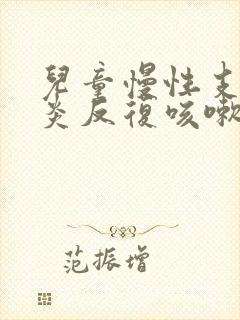 兒童慢性支
炎反復咳嗽
范振增